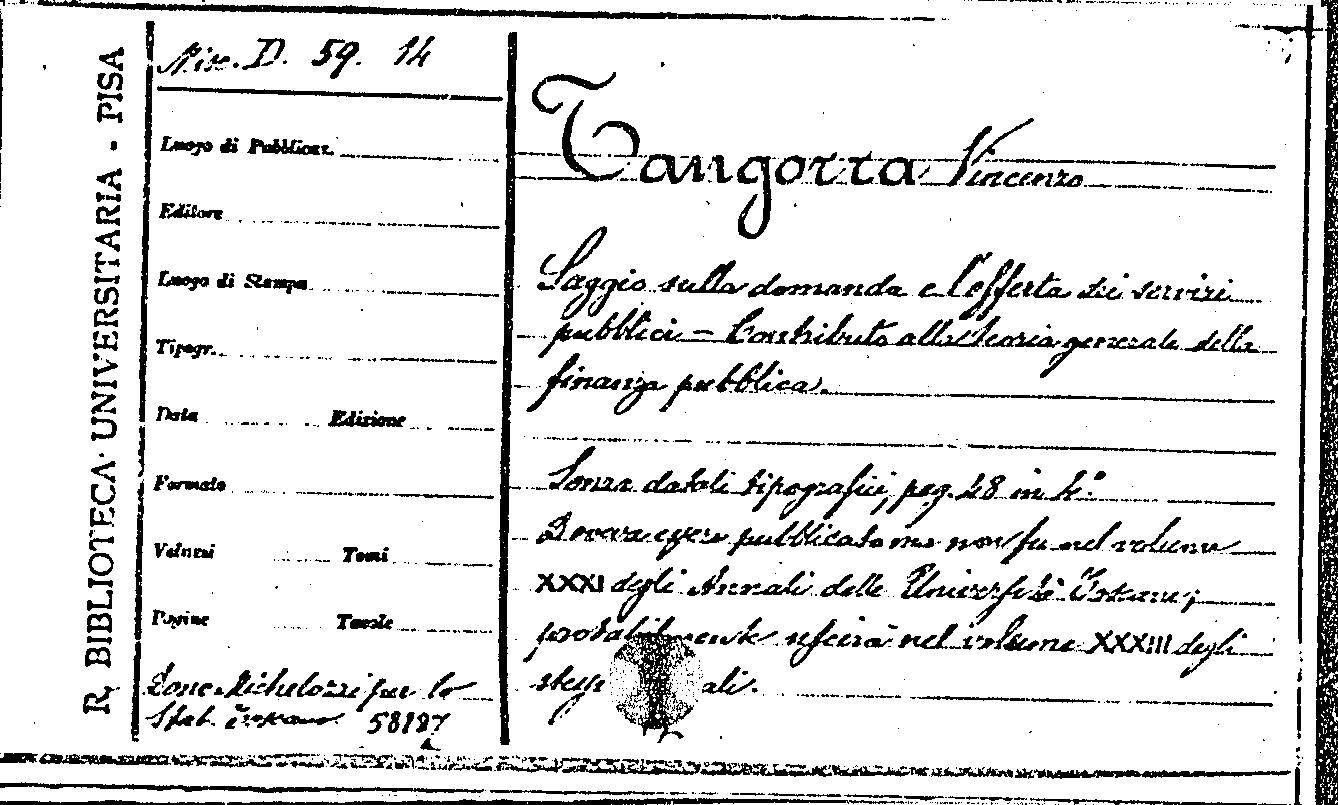 R. BIBLIOTECA UNIVERSITARIA - PISA
Misc. D. 59. 14
Luogo di Pubblicaz.
Editore
Luogo di Stampa
Tipogr.
Data Edizione
Formato
Volumi Tomi
Pagine Tavole
Dono Michelozzi per lo
Stab. Toscano 58187
Tangorra Vincenzo
Saggio sulla domanda e l'offerta dei servizi
pubblici – Contributo alla teoria generale della
finanza pubblica.
Senza datali tipografici, pag. 48 in 4.º
Doveva essere pubblicato ma non fu nel volume
XXXI degli Annali delle Università Toscane;
probabilmente uscirà nel volume XXXIII degli